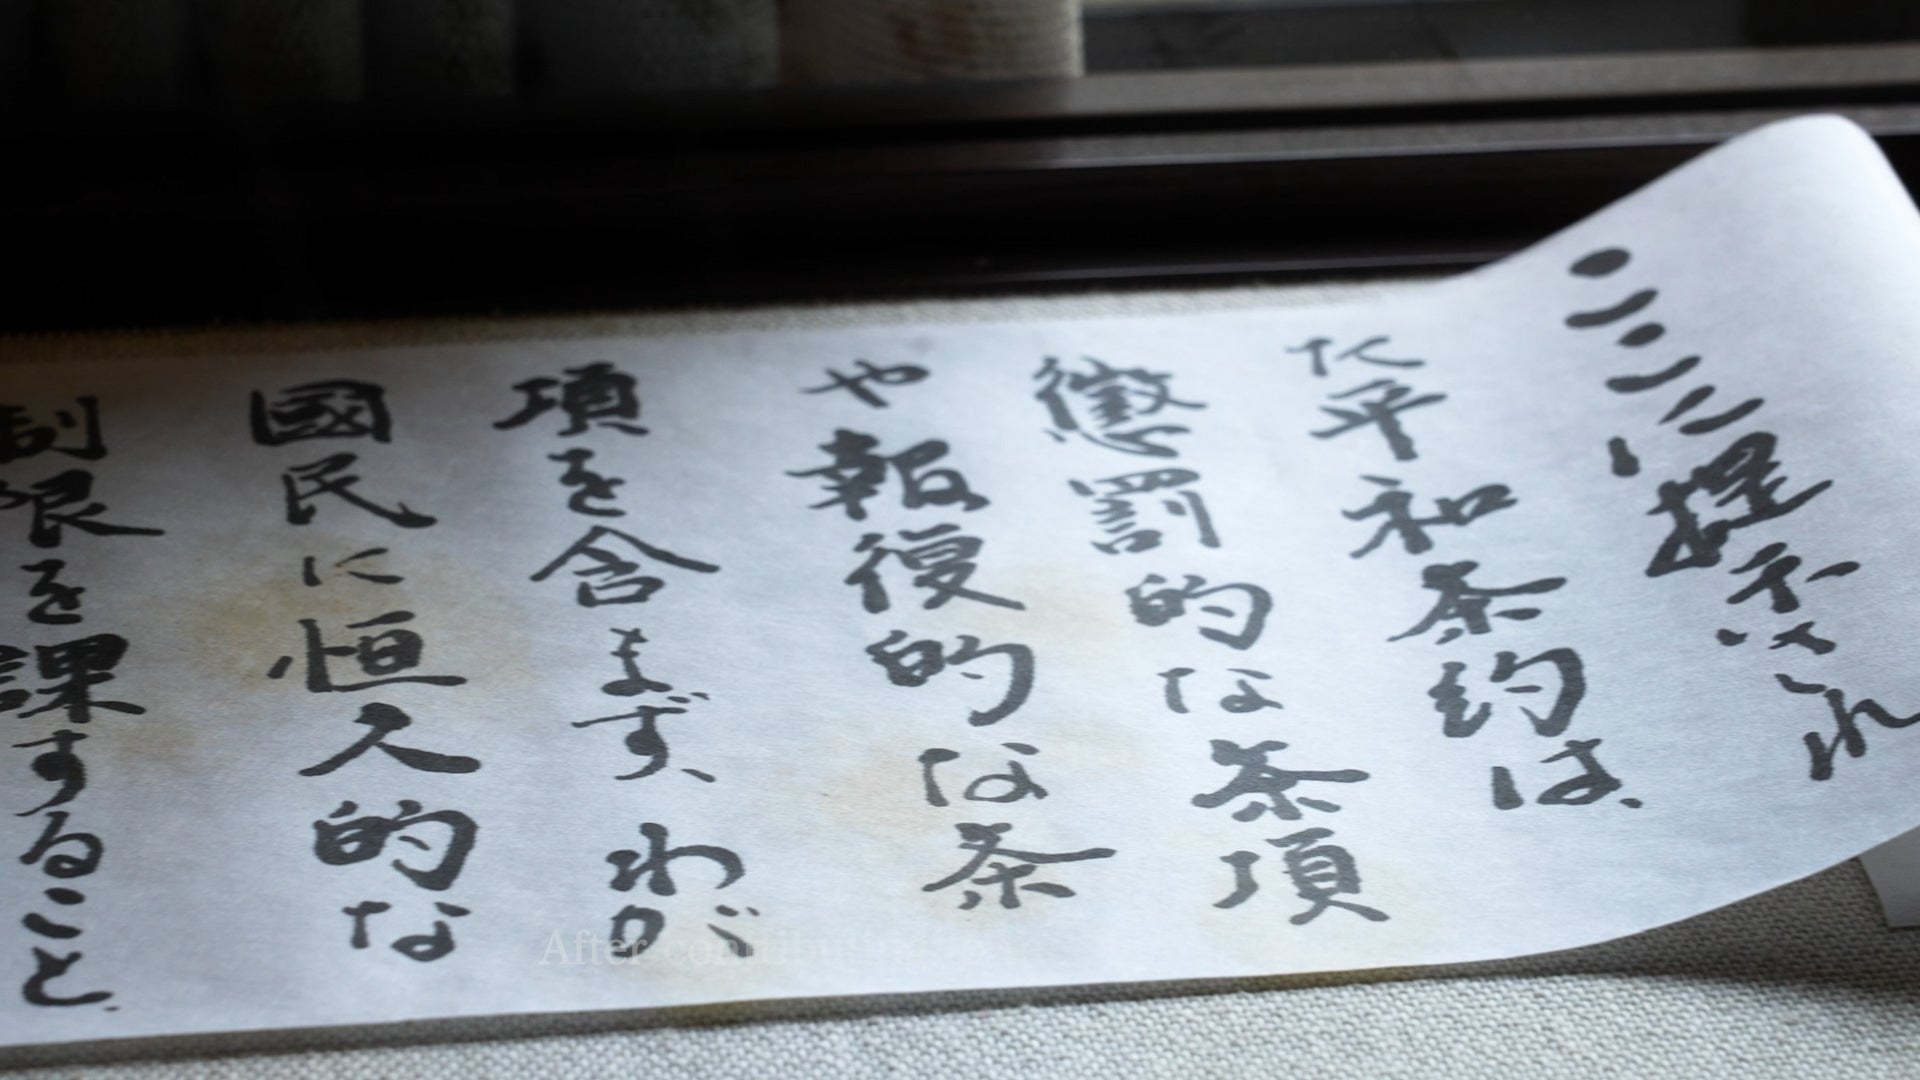 ・ここに提示され
た平和条約は、
懲罰的な条項
や報復的な条
項を含まず、わが
國民に恒久的な
制限を課すること、
After